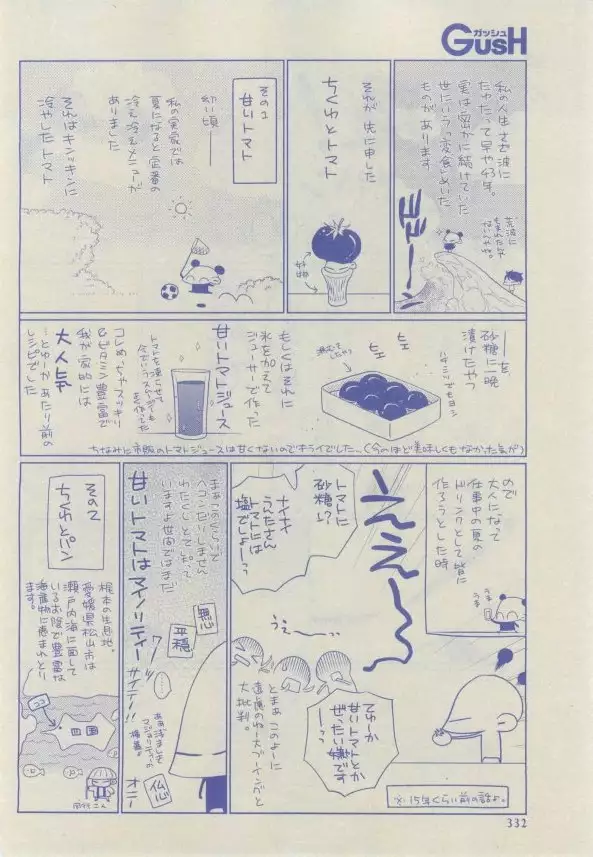 ガッシュ
GUSH
私の人生 大波に
もまれて早や43年。
実は密かに続けていた
世にいう「変食」めいた
ものがあります
荒波に
それが 先に申した
ちくわとトマト
その1
甘いトマト
幼い頃——
私の実家では
夏になると定番の
冷え冷えメニューが
ありました
それはキンッキンに
冷やしたトマト
——を、
砂糖に一晩
漬けたやつ
ハチミツでもヨシ
もしくはそれに
氷を加えて
ジューサーで作った
甘いトマトジュース
コレめっちゃスッキリ
&ビタミン豊富で
我が家的には
大人気
…とゆーかあたり前の
レシピでした
ちなみに市販のトマトジュースは甘くないのでキライでした…(今のほど美味しくもなかった気が)
ので
大人になって
仕事中の夏の
ドリンクとして皆に
作ろうとした時
えぇ～～っ
トマトに
砂糖ぅ?
ナイナイ
うんたさん
トマトには
塩でしょーっ
うえ～～
てゆーか
甘いトマトとか
ぜったい嫌です
——っっ
とまぁ このよーに
遠慮のねー大ブーイングと
大批判。
※15年くらい前の話よ。
まぁこのくらいで
ヘコんだりしません
わたくし。とて、だって
いますよ世間ではまだ
甘いトマトはマイノリティー
サイテー!!
無心
平穏
仏心
その2
ちくわとパン
梶本の生息地。
愛媛県松山市は
瀬戸内海に面して
いるお陰で豊富な
海産物に恵まれとり
ます。
ココ
四国
332